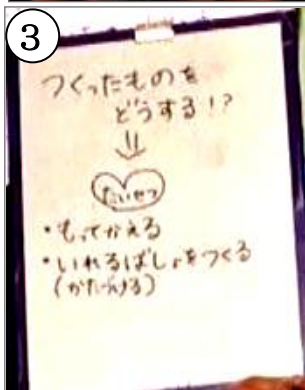 ③
つくったものを
どうする!?
⇓
たいせつ
・もってかえる
・いれるばしょをつくる
(かたづける)